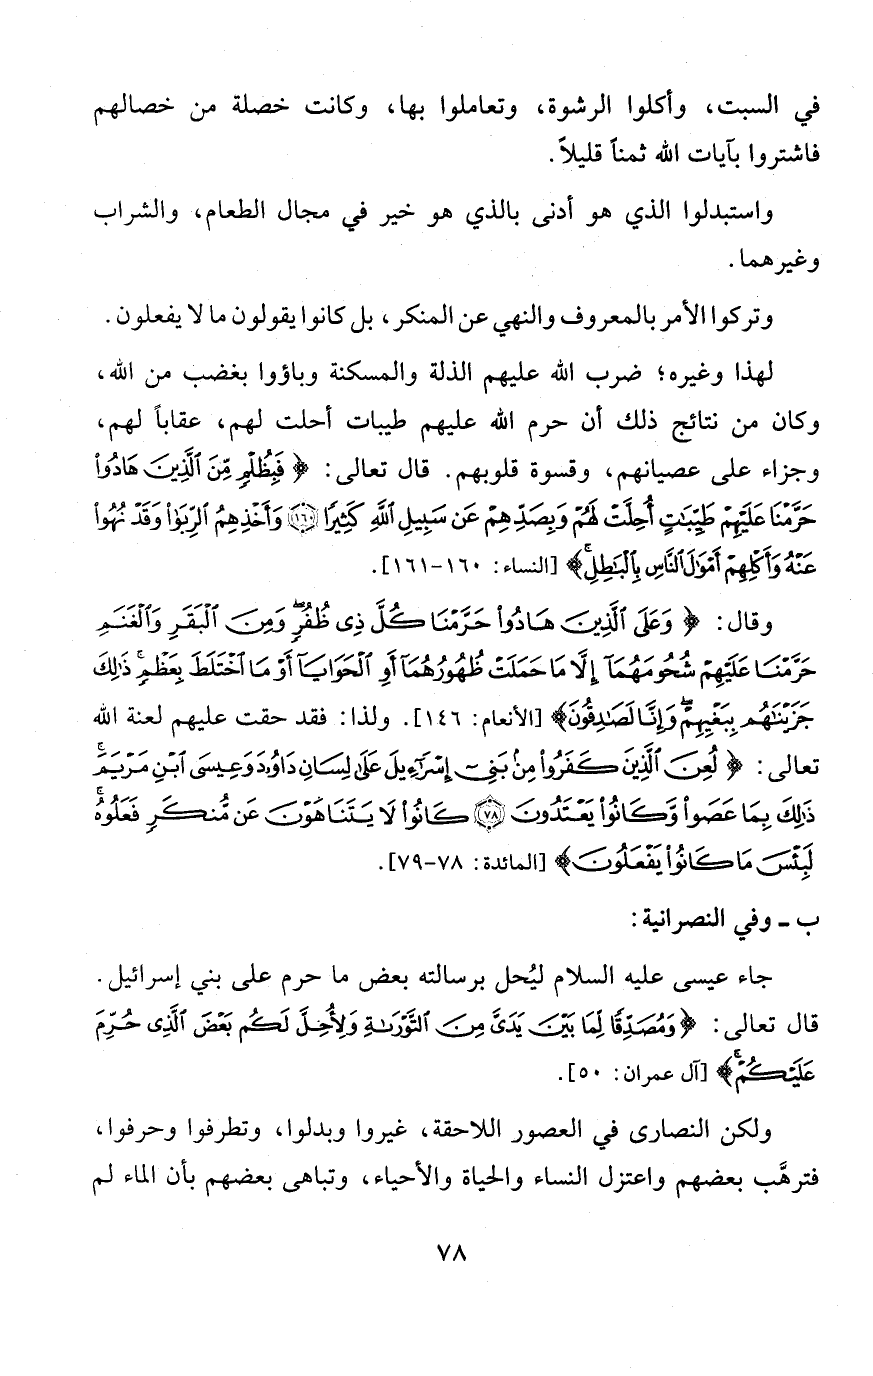 في السبت، وأكلوا الرشوة، وتعاملوا بها، وكانت خصلة من خصالهم
فاشتروا بآيات الله ثمناً قليلاً.
واستبدلوا الذي هو أدنى بالذي هو خير في مجال الطعام، والشراب
وغيرهما.
وتركوا الأمر بالمعروف والنهي عن المنكر، بل كانوا يقولون ما لا يفعلون.
لهذا وغيره؛ ضرب الله عليهم الذلة والمسكنة وباؤوا بغضب من الله،
وكان من نتائج ذلك أن حرم الله عليهم طيبات أحلت لهم، عقاباً لهم،
وجزاء على عصيانهم، وقسوة قلوبهم. قال تعالى: ﴿ فَبِظُلْمٍ مِّنَ ٱلَّذِينَ هَادُوا۟
حَرَّمْنَا عَلَيْهِمْ طَيِّبَٰتٍ أُحِلَّتْ لَهُمْ وَبِصَدِّهِمْ عَن سَبِيلِ ٱللَّهِ كَثِيرًا ۝١٦٠ وَأَخْذِهِمُ ٱلرِّبَوٰا۟ وَقَدْ نُهُوا۟
عَنْهُ وَأَكْلِهِمْ أَمْوَٰلَ ٱلنَّاسِ بِٱلْبَٰطِلِ ۚ﴾ [النساء: ١٦٠-١٦١].
وقال: ﴿ وَعَلَى ٱلَّذِينَ هَادُوا۟ حَرَّمْنَا كُلَّ ذِى ظُفُرٍ ۖ وَمِنَ ٱلْبَقَرِ وَٱلْغَنَمِ
حَرَّمْنَا عَلَيْهِمْ شُحُومَهُمَآ إِلَّا مَا حَمَلَتْ ظُهُورُهُمَآ أَوِ ٱلْحَوَايَآ أَوْ مَا ٱخْتَلَطَ بِعَظْمٍ ۚ ذَٰلِكَ
جَزَيْنَٰهُم بِبَغْيِهِمْ ۖ وَإِنَّا لَصَٰدِقُونَ﴾ [الأنعام: ١٤٦]. ولذا: فقد حقت عليهم لعنة الله
تعالى: ﴿ لُعِنَ ٱلَّذِينَ كَفَرُوا۟ مِنۢ بَنِىٓ إِسْرَٰٓءِيلَ عَلَىٰ لِسَانِ دَاوُۥدَ وَعِيسَى ٱبْنِ مَرْيَمَ ۚ
ذَٰلِكَ بِمَا عَصَوا۟ وَّكَانُوا۟ يَعْتَدُونَ ۝٧٨ كَانُوا۟ لَا يَتَنَاهَوْنَ عَن مُّنكَرٍ فَعَلُوهُ ۚ
لَبِئْسَ مَا كَانُوا۟ يَفْعَلُونَ﴾ [المائدة: ٧٨-٧٩].
ب - وفي النصرانية:
جاء عيسى عليه السلام ليُحل برسالته بعض ما حرم على بني إسرائيل.
قال تعالى: ﴿وَمُصَدِّقًا لِّمَا بَيْنَ يَدَىَّ مِنَ ٱلتَّوْرَىٰةِ وَلِأُحِلَّ لَكُم بَعْضَ ٱلَّذِى حُرِّمَ
عَلَيْكُمْ ۚ﴾ [آل عمران: ٥٠].
ولكن النصارى في العصور اللاحقة، غيروا وبدلوا، وتطرفوا وحرفوا،
فترهَّب بعضهم واعتزل النساء والحياة والأحياء، وتباهى بعضهم بأن الماء لم
٧٨